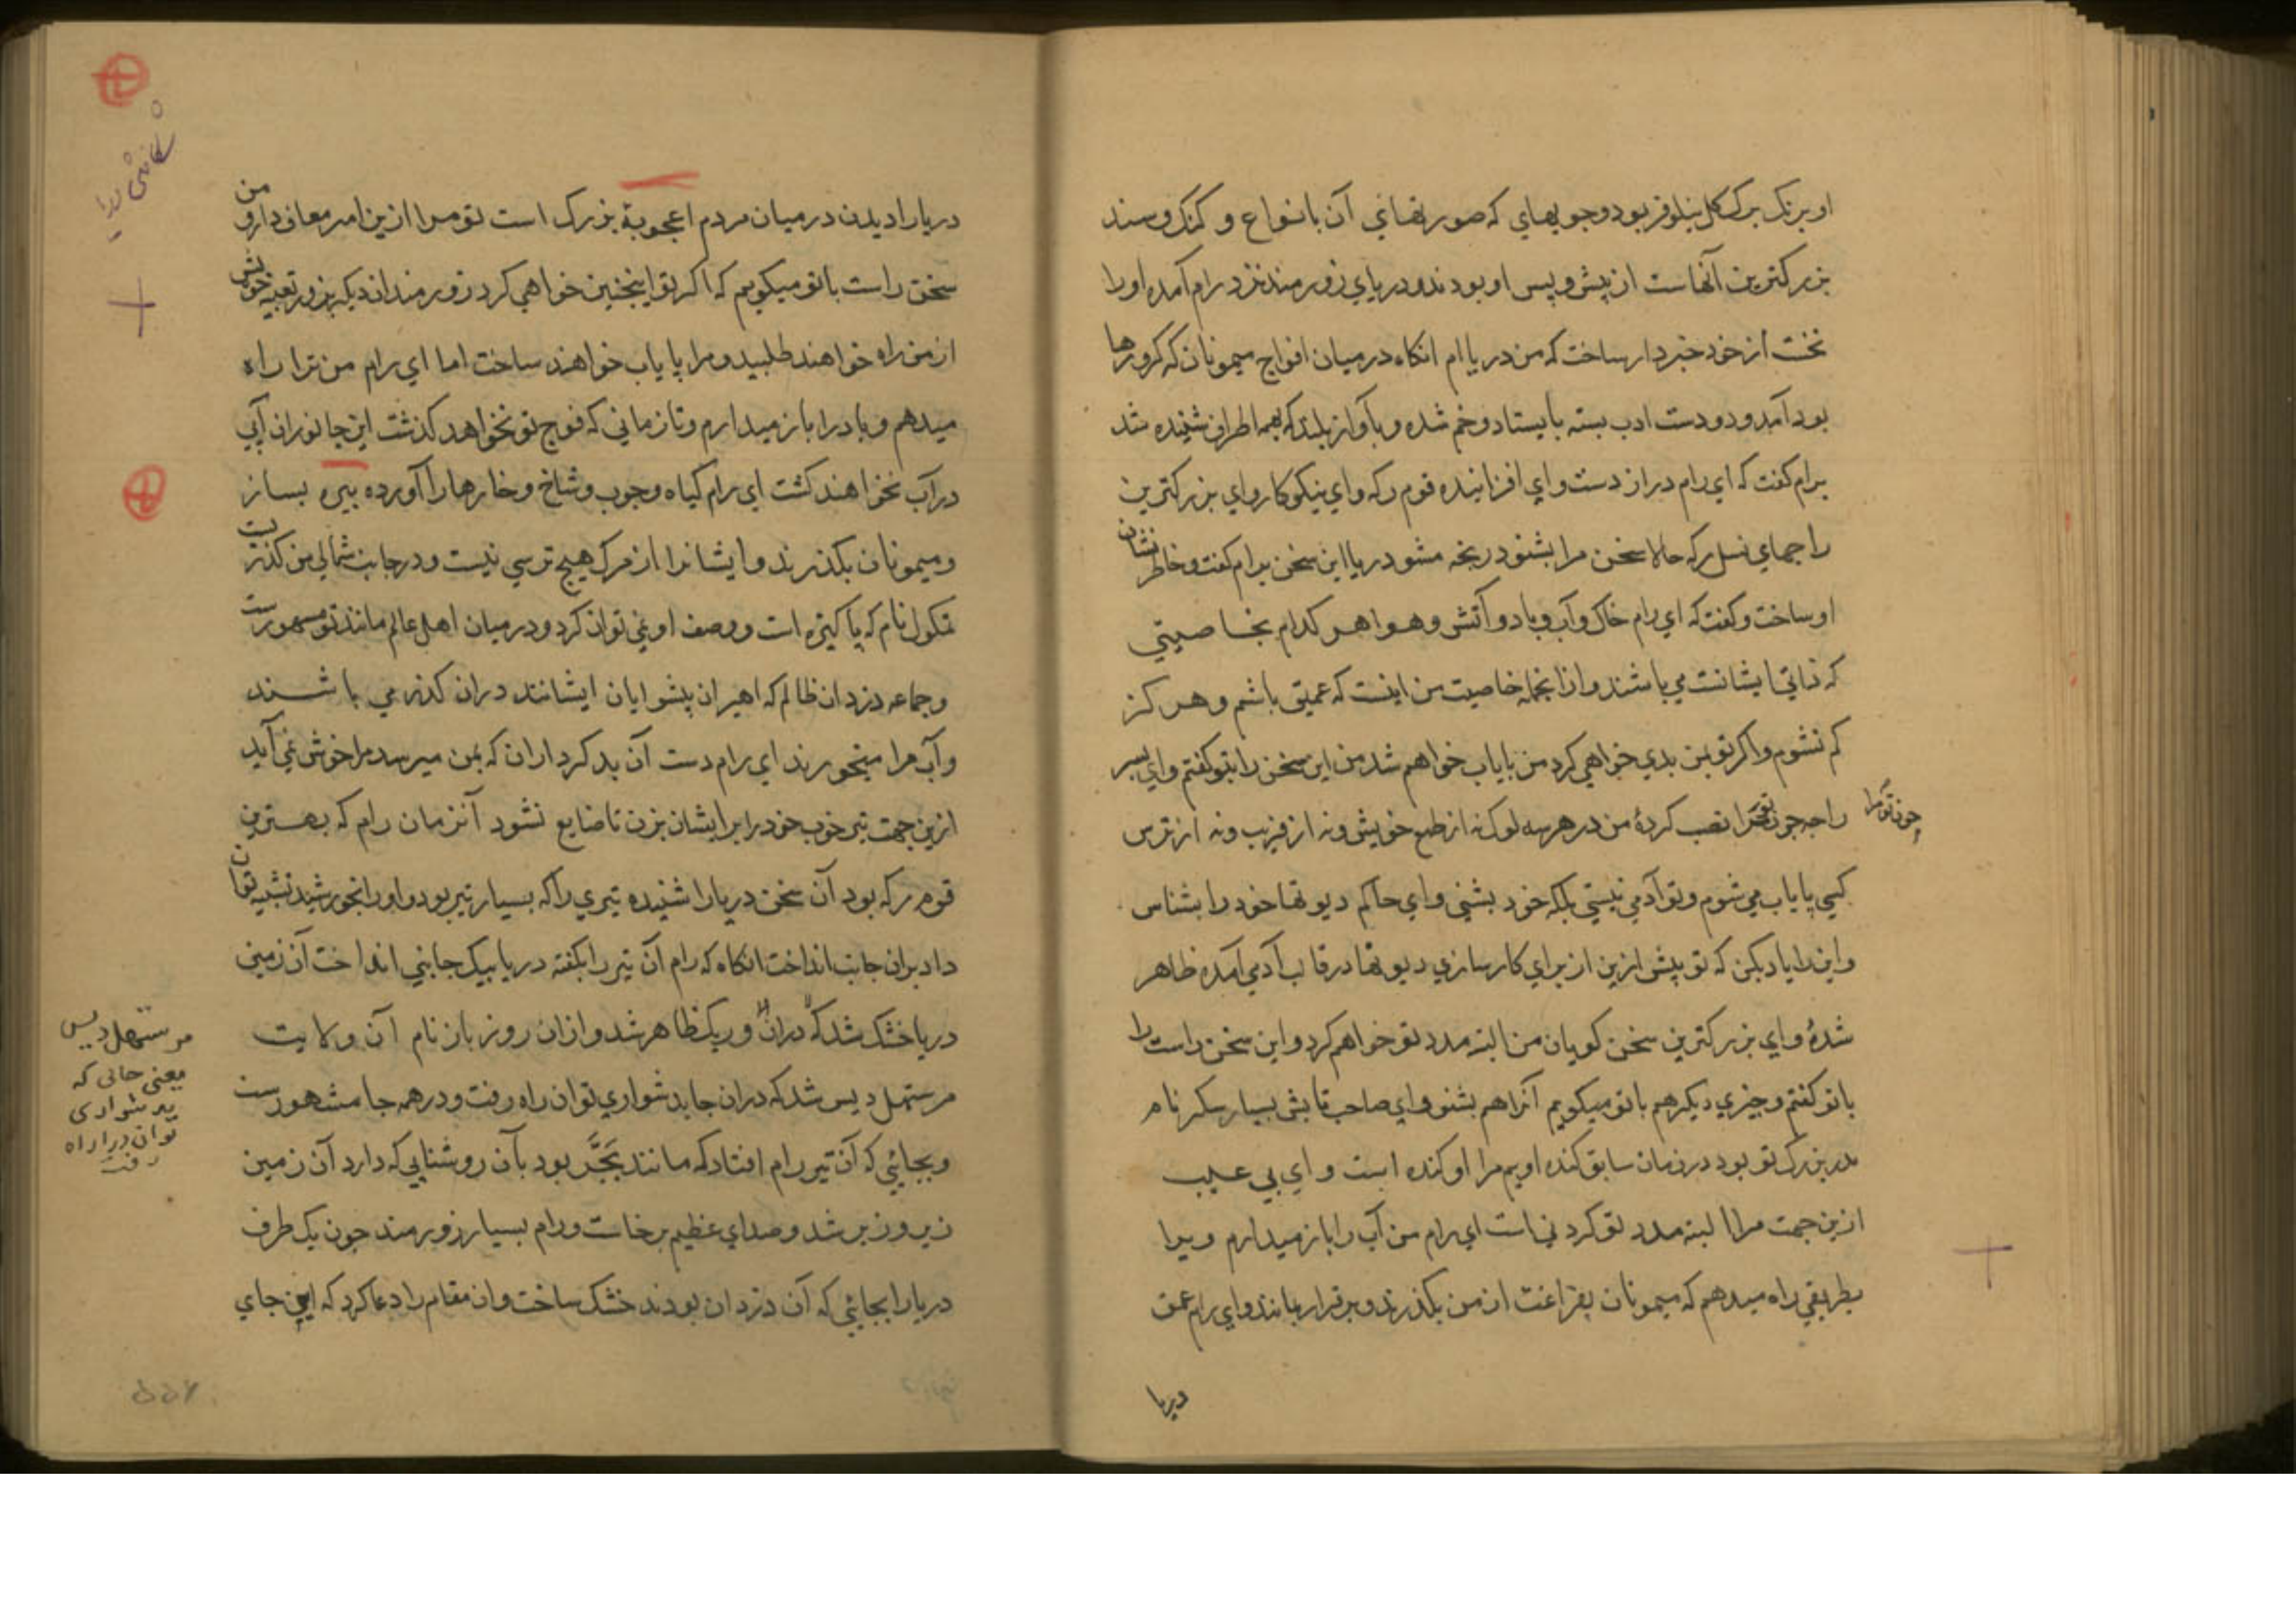 او برنک برک کل نیلوفر بود وجویهای که صورتهائي آن بانواع و کنک وسند
بزرکترین آنهاست از پیش و پس او بودند ودریای زورمند نزد رام آمده اورا
نخست از خود خبردار ساخت که من دریا ام انکاه درمیان افواج میمونان که کرورها
بود آمد ودو دست ادب بسته بایستاد وخم شده وبآواز بلند که بهمه اطراف شنیده شد
برام کفت که ای رام دراز دست وای افزاینده قوم رکه وای نیکوکار وای بزرکترین
راجهای نسل رکه حالا سخن مرا بشنو درنجه مشو دریا این سخن برام کفت وخاطر نشان
او ساخت وکفت که ای رام خاک وآب وباد وآتش وهوا هر کدام بخاصیتي
که ذاتي ایشانست مي باشند وازانجمله خاصیت من اینست که عمیق باشم وهرکز
کم نشوم واکر تو بمن بدي خواهي کرد من پایاب خواهم شد من این سخن را بتو کفتم وای پسر
راجه چون تو مرا نصب کردهٔ من در هر سه لوک نه از طمع خویش ونه از فریب ونه از ترس
چون تو مرا
کسي پایاب مي شوم وتو آدمي نیستي بلکه خود بشني وای حاکم دیوتها خود را بشناس
واین را یاد بکن که تو پیش ازین از برای کارسازي دیوتها در قالب آدمي آمده ظاهر
شدهٔ وای بزرکترین سخن کویان من البته مدد تو خواهم کرد واین سخن راست را
باتو کفتم وچیزي دیکر هم باتو میکویم آنرا هم بشنو وای صاحب تابش بسیار سکر نام
پدر بزرک تو بود در زمان سابق کنده او یم مرا او کنده است وای بي عیب
ازین جهت مرا البته مدد تو کردني است ای رام من آب را باز میدارم وبرا
بطریقي راه میدهم که میمونان بفراغت از من بکذرند وبرقرار بمانند وای رام عمق
دریا
دریا را دیدن درمیان مردم اعجوبهٔ بزرک است تو مرا ازین امر معاف دار و من
سخن راست باتو میکویم که اکر تو اینچنین خواهي کرد زورمندان دیکر بزور تعبیه خویش
از من راه خواهند طلبید ومرا پایاب خواهند ساخت اما ای رام من ترا راه
میدهم وباد را باز میدارم وتا زماني که فوج تو نخواهد کذشت این جانوران آبي
در آب نخواهند کشت ای رام کیاه وچوب وشاخ وخارها را آورده بیره بساز
ومیمونان بکذرند وایشانرا از مرک هیچ ترسي نیست ودر جانب شمالي من کذریست
تمکول نام که پاکیزه است ووصف او نمي توان کرد ودرمیان اهل عالم مانند تو مشهورست
وجماعه دزدان ظالم که اهیران پیشوایان ایشانند دران کذر مي باشند
وآب مرا میخورند ای رام دست آن بدکرداران که بمن میرسد مرا خوش نمي آید
ازین جهت تیر خوب خود را بر ایشان بزن تا ضایع نشود آنزمان رام که بهترین
قوم رکه بود آن سخن دریا را شنیده تیري را که بسیار تیز بود واورا بخورشید تشبیه توان
داد بران جانب انداخت انکاه که رام آن تیر را بکفته دریا بیک جانبي انداخت آن زمین
دریا خشک شد که دران وریک ظاهر شد وازان روز باز نام آن ولایت
مرستهل دیس شد که دران جا بدشواري توان راه رفت ودر همه جا مشهورست
وبجائي که آن تیر رام افتاد که مانند بَجَّر بود بآن روشنایي که دارد آن زمین
زیر وزبر شد وصدای عظیم برخاست ورام بسیار زورمند چون یک طرف
دریا را بجائي که آن دزدان بودند خشک ساخت وان مقام را دعا کرد که این جای
مرستهل دیس
یعنی جائی که
بدشواری
توان دران راه
رفت